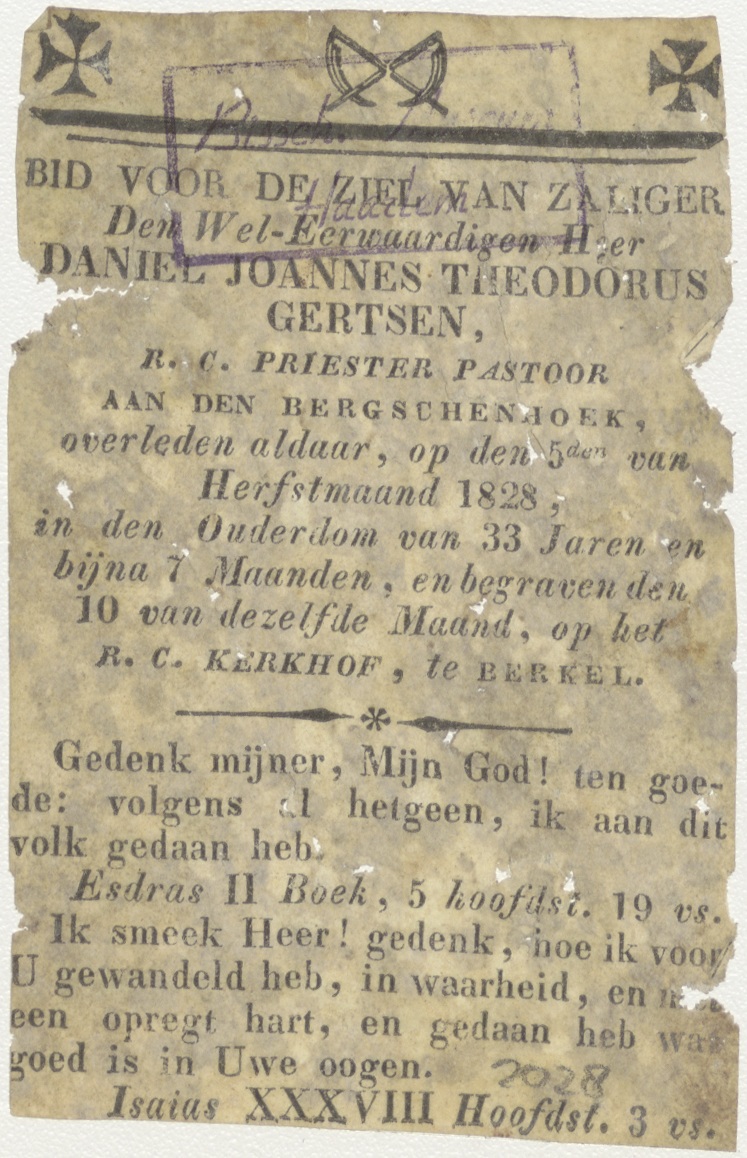 Bissch. Museum
Haarlem
BID VOOR DE ZIEL VAN ZALIGER
Den Wel-Eerwaardigen Heer
DANIEL JOANNES THEODORUS
GERTSEN,
R. C. PRIESTER PASTOOR
AAN DEN BERGSCHENHOEK,
overleden aldaar, op den 5den van
Herfstmaand 1828,
in den Ouderdom van 33 Jaren en
bijna 7 Maanden, en begraven den
10 van dezelfde Maand, op het
R. C. KERKHOF, te BERKEL.
Gedenk mijner, Mijn God! ten goe-
de: volgens al hetgeen, ik aan dit
volk gedaan heb.
Esdras II Boek, 5 hoofdst. 19 vs.
Ik smeek Heer! gedenk, hoe ik voor
U gewandeld heb, in waarheid, en met
een opregt hart, en gedaan heb wat
goed is in Uwe oogen.
2028
Isaias XXXVIII Hoofdst. 3 vs.